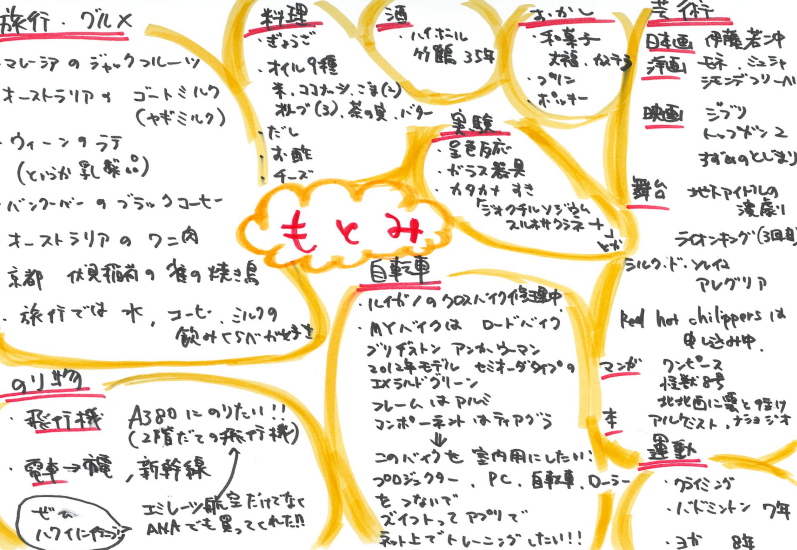 旅行・グルメ
・マレーシアのジャックフルーツ
オーストラリアの ゴートミルク
(ヤギミルク)
・ウィーンのラテ
(というか乳製品)
・バンクーバーのブラックコーヒー
オーストラリアの ワニ肉
京都 伏見稲荷の雀の焼き鳥
・旅行では 水、コーヒー、ミルクの
飲みくらべが好き
料理
・ぎょうざ
・オイル9種
米、ココナッツ、ごま(2)
オリーブ(3)、茶の実、バター
・だし
・お酢
・チーズ
酒
・ハイボール
竹鶴 35年
おかし
・和菓子
大福、カステラ
・プリン
・ポッキー
芸術
日本画 伊藤若冲
洋画 モネ、ミュシャ
映画 ジブリ
トップガン2
すずめのとじまり
舞台 地下アイドルの
演劇
ライオンキング(3回目)
シルク・ド・ソレイユ
アレグリア
Red hot chilippersは
申し込み中.
マンガ ワンピース
怪獣8号
北北西に雲と往け
本 アルケミスト、ナショジオ
実験
・呈色反応
・ガラス器具
・カタカナ すき
「ジオクチルソジウム
スルホサクシネート」
とか
もとみ
自転車
・ルイガノのクロスバイク修理中
・MYバイクは ロードバイク
ブリヂストン アンカーウーマン
2012年モデル セミオーダタイプの
エメラルドグリーン
フレームはアルミ
コンポーネントはティアグラ
⇓
このバイクを室内用にしたい!
プロジェクター、PC、自転車、ローラー
をつないで
ズイフトってアプリで
ネット上でトレーニングしたい!!
のり物
・飛行機 A380にのりたい!!
(2階だての飛行機)
・電車→市電、新幹線
エミレーツ航空だけでなく
ANAでも買ってくれた!!
ぜひ
ハワイに行こう
運動
・クライミング
・バドミントン 7年
・ヨガ 8年